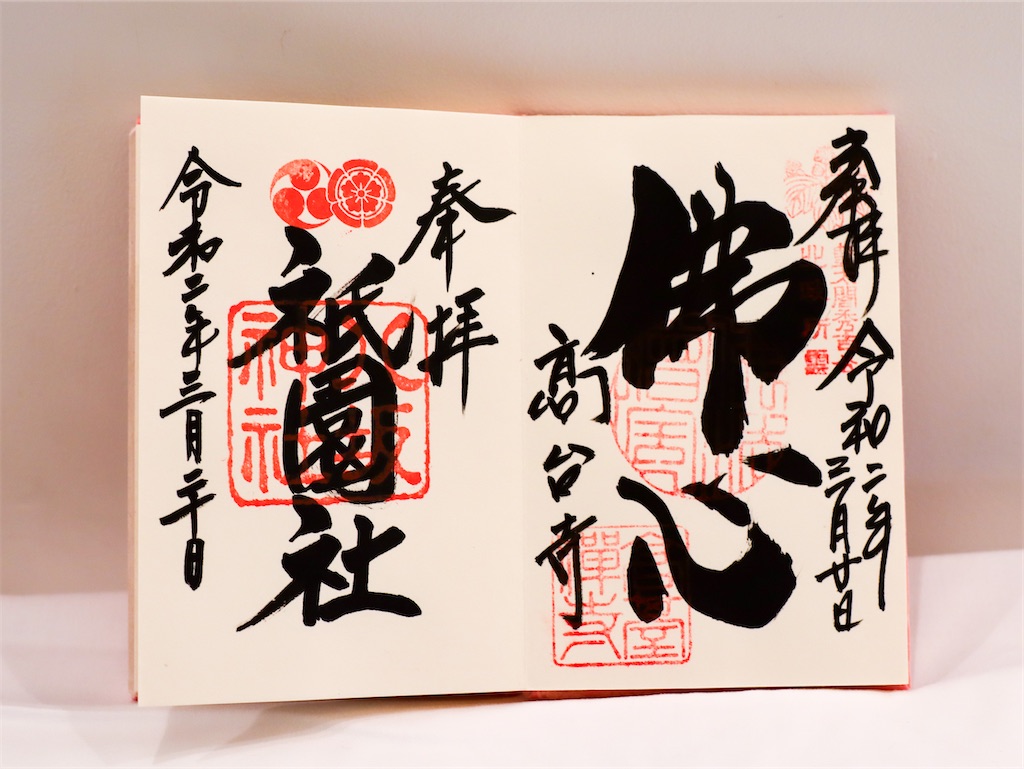 奉拝
令和二年
三月廿日
佛心
高台寺
奉拝
祇園社
八坂
神社
令和二年三月二十日